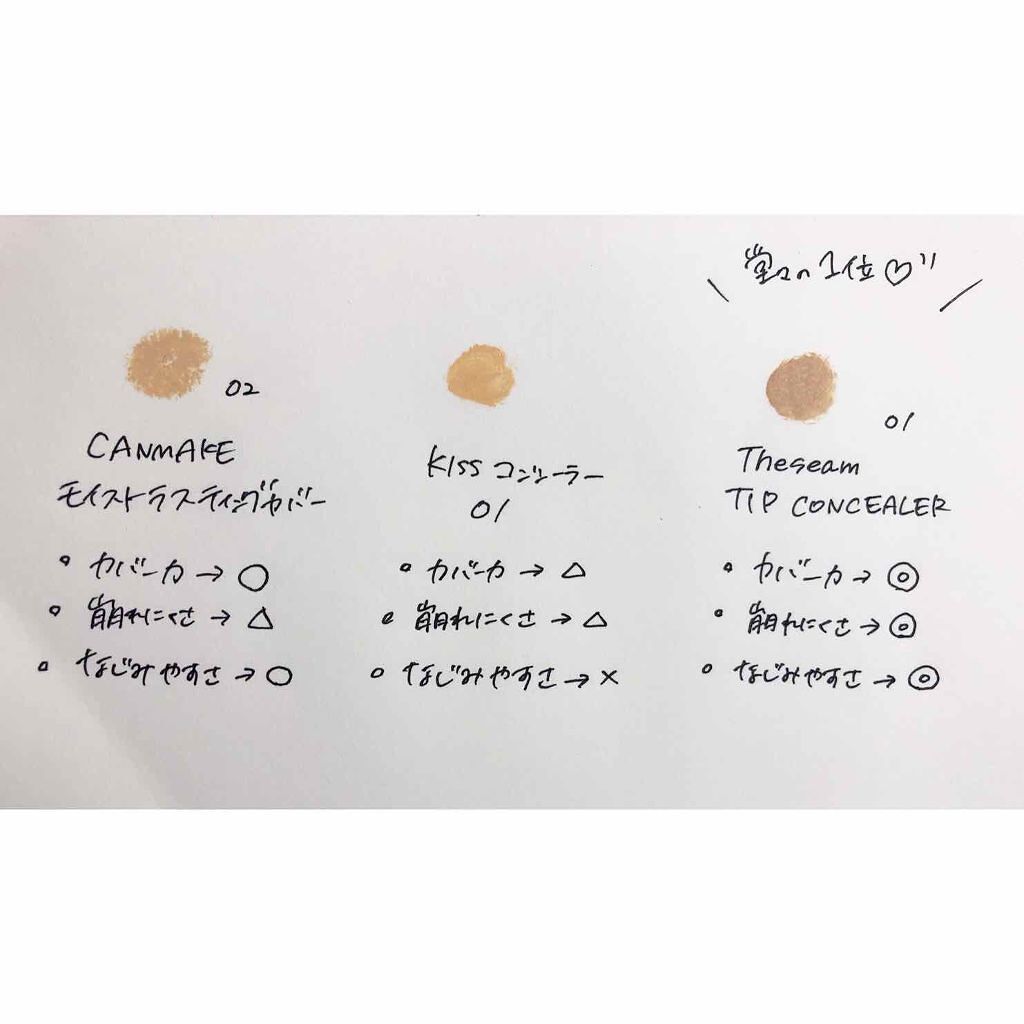 堂々の1位♡
02
CANMAKE
モイストラスティングカバー
• カバー力→○
• 崩れにくさ→△
• なじみやすさ→○
KISS コンシーラー
01
• カバー力→△
• 崩れにくさ→△
• なじみやすさ→×
01
Theseam
TIP CONCEALER
• カバー力→◎
• 崩れにくさ→◎
• なじみやすさ→◎